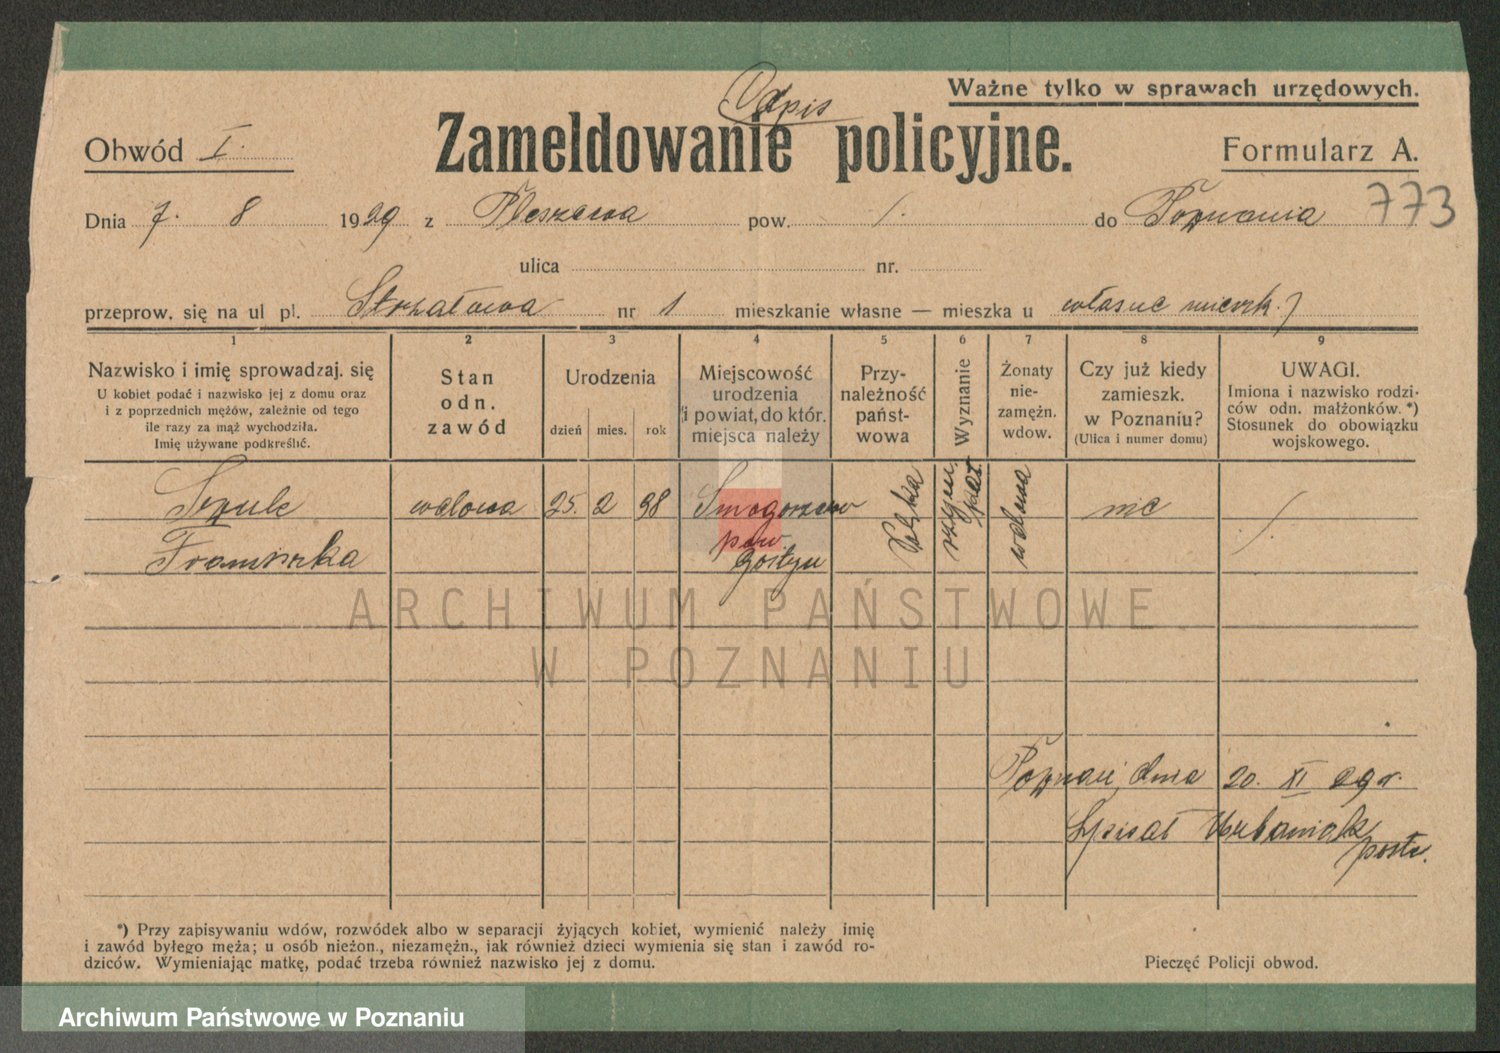 Odpis
Ważne tylko w sprawach urzędowych.
Obwód I.
Zameldowanie policyjne.
Formularz A.
Dnia 7. 8 1929 z Pleszewa pow. /. do Poznania 773
ulica nr.
przeprow. się na ul pl. Strzałowa nr 1 mieszkanie własne — mieszka u własne mieszk.)
1 2 3 4 5 6 7 8 9
Nazwisko i imię sprowadzaj. się
U kobiet podać i nazwisko jej z domu oraz
i z poprzednich mężów, zależnie od tego
ile razy za mąż wychodziła.
Imię używane podkreślić.
Stan
odn.
zawód
Urodzenia
dzień mies. rok
Miejscowość
urodzenia
i powiat, do któr.
miejsca należy
Przy-
należność
państ-
wowa
Wyznanie
Żonaty
nie-
zamężn.
wdow.
Czy już kiedy
zamieszk.
w Poznaniu?
(Ulica i numer domu)
UWAGI.
Imiona i nazwisko rodzi-
ców odn. małżonków.*)
Stosunek do obowiązku
wojskowego.
Szulc wdowa 25. 2 98 Smogorzewo Polska rzym. wdowa nie /.
Franciszka pow.
Gostyń
ARCHIWUM PAŃSTWOWE
W POZNANIU
Poznań, dnia 20. XI 29 r.
Spisał Urbaniak
post.
*) Przy zapisywaniu wdów, rozwódek albo w separacji żyjących kobiet, wymienić należy imię
i zawód byłego męża; u osób nieżon., niezamężn., jak również dzieci wymienia się stan i zawód ro-
dziców. Wymieniając matkę, podać trzeba również nazwisko jej z domu.
Pieczęć Policji obwod.
Archiwum Państwowe w Poznaniu